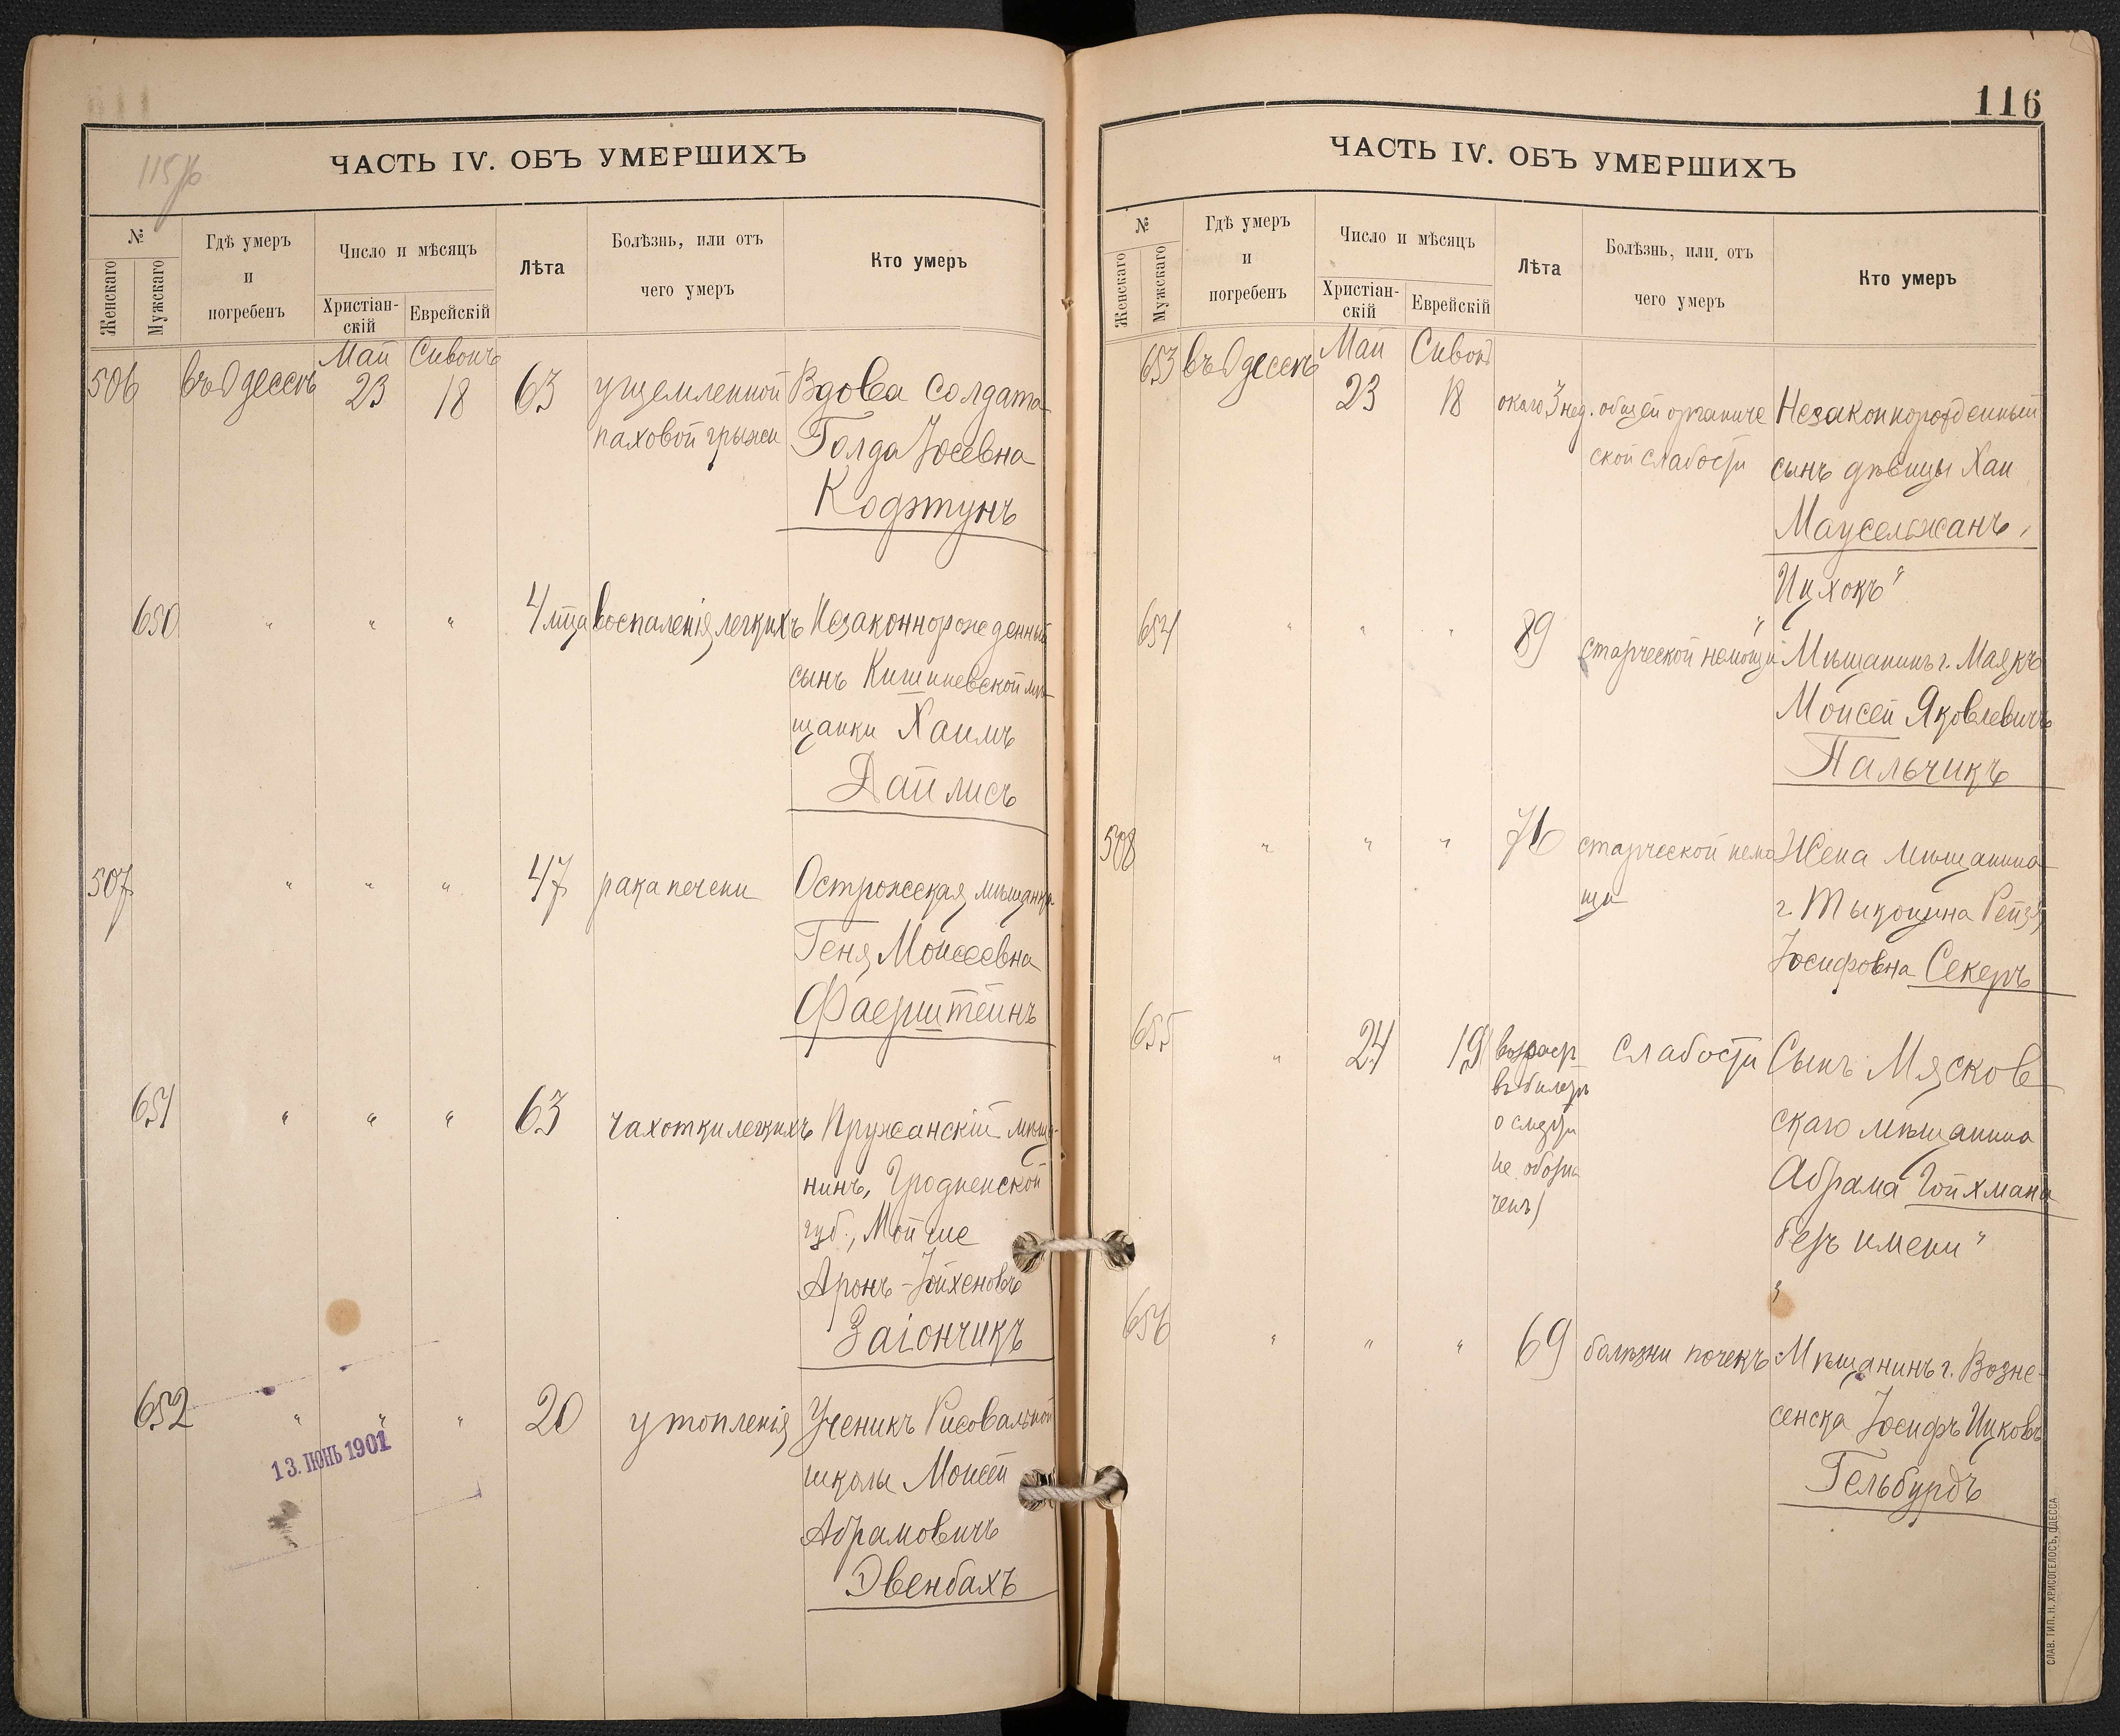 115 об
ЧАСТЬ IV. ОБЪ УМЕРШИХЪ
№
Женскаго
Мужскаго
Гдѣ умеръ
и
погребенъ
Число и мѣсяцъ
Христіан-
скій
Еврейскій
Лѣта
Болѣзнь, или отъ
чего умеръ
Кто умеръ
Май Сивонъ
506 въ Одессѣ 23 18 63 ущемленной Вдова солдата
паховой грыжи Голда Іосевна
Коджтунъ
650 " " " 4 мѣца воспаленія легкихъ Незаконнорожденный
сынъ Кишиневской мѣ-
щанки Хаимъ
Дайлисъ
507 " " " 47 рака печени Острожская мѣщанка
Геня Моисеевна
Фаерштейнъ
651 " " " 63 чахотки легкихъ Пружанскій мѣща-
нинъ, Гродненской
губ., Мойше
Аронъ-Іойхеновъ
Заіончикъ
652 " " " 20 утопленія Ученикъ Рисовальной
школы Моисей
Абрамовичъ
Эвенбахъ
13. ІЮНЬ 1901
116
ЧАСТЬ IV. ОБЪ УМЕРШИХЪ
№
Женскаго
Мужскаго
Гдѣ умеръ
и
погребенъ
Число и мѣсяцъ
Христіан-
скій
Еврейскій
Лѣта
Болѣзнь, или отъ
чего умеръ
Кто умеръ
Май Сивонъ
653 въ Одессѣ 23 18 около 3 нед. общей органиче Незаконнорожденный
ской слабости сынъ дѣвицы Хаи
Маусельжанъ,
Ицхокъ "
654 " " " 89 старческой немощи Мѣщанинъ г. Маякъ
Моисей Яковлевичъ
Пальчикъ
508 " " " 76 старческой немо Жена мѣщанина
щи г. Тыкоцина Рейзя
Іосифовна Секеръ
655 " 24 19 возраст слабости Сынъ Мясков
въ билетѣ
о смерти скаго мѣщанина
не обозна Абрама Гойхмана
ченъ) безъ имени "
656 " " " 69 болѣзни почекъ Мѣщанинъ г. Возне-
сенска Іосифъ Ицковъ
Гельбурдъ
СЛАВ. ТИП. Н. ХРИСОГЕЛОСЪ, ОДЕССА